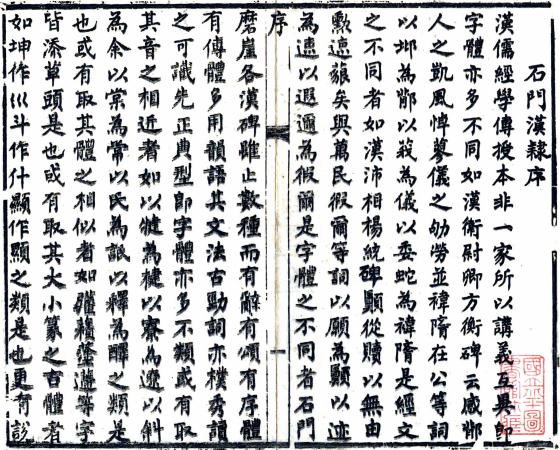 石門漢隷序
漢儒經學傳授本非一家所以講義互異即
字體亦多不同如漢衛尉卿方衡碑云感邶
人之凱風悼蓼儀之劬勞並禕隋在公等詞
以邶為鄁以莪為儀以委蛇為禕隋是經文
之不同者如漢沛相楊統碑顯從牘以無由
勲速藐矣與萬民徦爾等詞以願為顯以迹
為速以遐邇為徦爾是字體之不同者石門
序
磨崖各漢碑雖止數種而有辭有頌有序體
有傳體多用韻語其文法古勁詞亦樸秀讀
之可識先正典型即字體亦多不類或有取
其音之相近者如以楗為楗以寮為遼以斜
為余以常為常以民為詆以釋為醳之類是
也或有取其體之相似者如等字
皆添草頭是也或有取其大小篆之古體者
如坤作巛斗作什顯作顥之類是也更有談